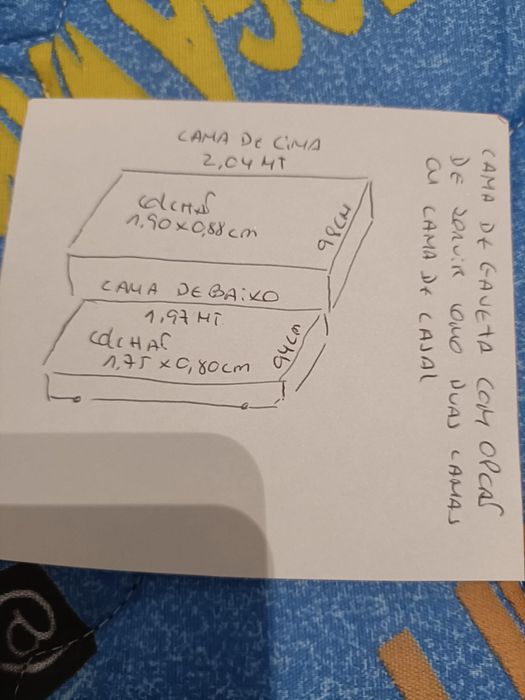 CAMA DE CIMA
2,04 MT
COLCHÃO
1,90 x 0,88 cm
98 CM
CAMA DE BAIXO
1,97 MT
COLCHÃO
1,75 x 0,80 cm
94 cm
CAMA DE GAVETA COM OPCAS
DE SERVIR COMO DUAS CAMAS
OU CAMA DE CASAL